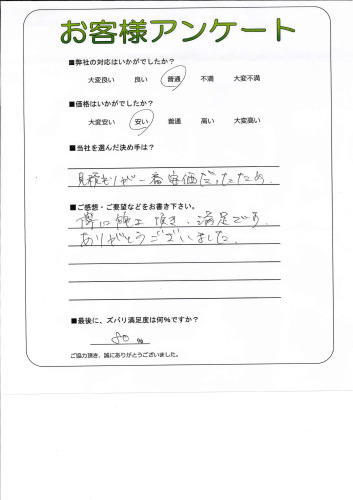 お客様アンケート
■弊社の対応はいかがでしたか？
大変良い 良い 普通 不満 大変不満
■価格はいかがでしたか？
大変安い 安い 普通 高い 大変高い
■当社を選んだ決め手は？
見積もりが一番安価だったため。
■ご感想・ご要望などをお書き下さい。
施工頂き、満足です。
ありがとうございました。
■最後に、ズバリ満足度は何%ですか？
80 %
ご協力頂き、誠にありがとうございました。